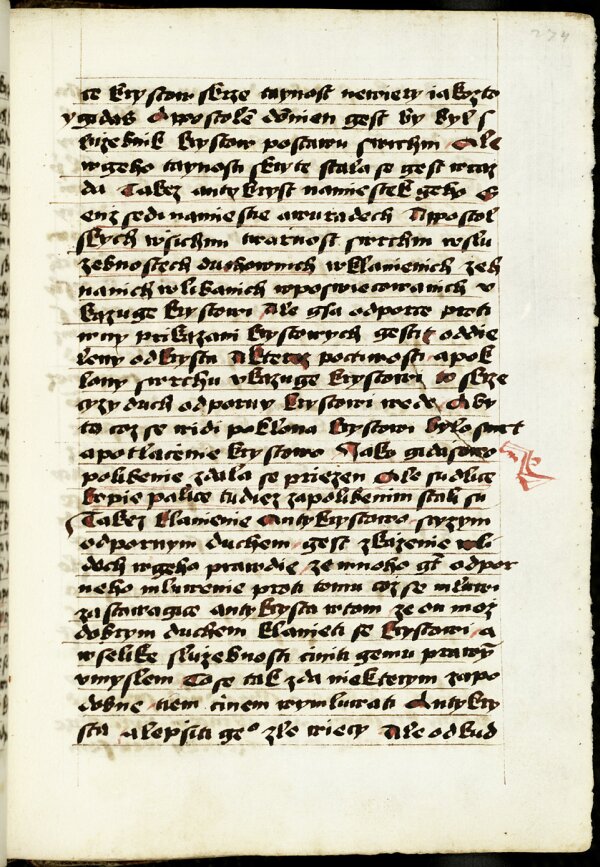 te krystow skrze taynost newiery iakozto
ygidas Apostolē dōmien gest by byl s
luzebnik krystow postawu swrchu Ale
wgeho taynosti skryte stala se gest wraz
da Takez antykryst namiestek geho
enz sedi namiestie awuradech Appostol
skych wsichni twarnost swrchu wslu
zebnostech duchownich wklanienich zeh
nanich wlibanich wposwiecowanich v
kazuge krystowi Ale gsa odporce proti
wny prikazani krystowych gesti oddie
leny odkrysta Akteruz poctiwosti apok
lony swrchu vkazuge krystowi to skrze
cyzy duch odporny krystowi wede Aby
to coz se widi poklona krystowi bylo smrt
apotlacenie krystowo Jako gidasowo
polibenie zdala se priezen Ale sudlice
kopie palice tudiez zapolibenim stali su
Takez klanienie Antykrystowo cyzym
odpornym duchem gest zkazenie
doch wgeho prawdie zemnoho gt̄ odpor
neho mluwenie proti tomu coz se mluwi
zastawagice antykrysta wtom ze on moz
dobrym duchem klanieti se krystowi a
wselike sluzebnosti ciniti gemu prawȳ
vmyslem To se tak zda niekterym zapo
dobne tiem cinem wymluwati Antykry
sta alepsiti geº zle wiecy Ale odkud